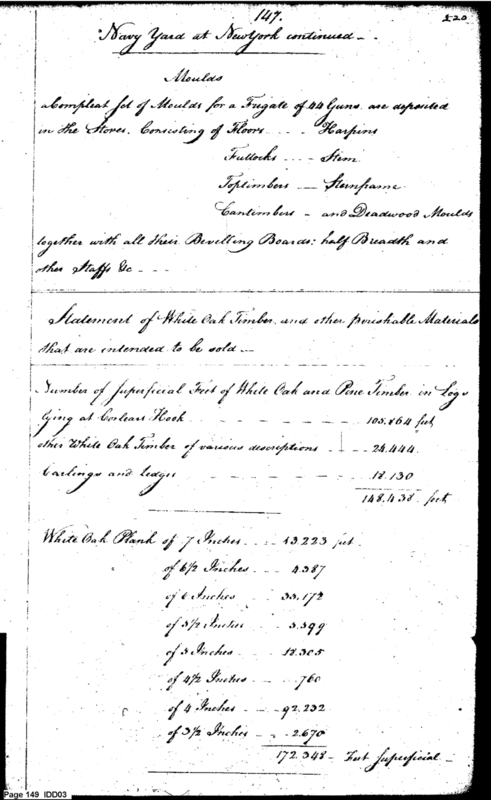 147.
220
Navy Yard at New York continued -
Moulds
a Compleat Set of Moulds for a Frigate of 44 Guns are deposited
in the Stores. Consisting of Floors - - - - Harpins
Futtocks - - - - Stem
Toptimbers - - Sternframe
Cantimbers - and Deadwood Moulds
together with all their Bevelling Boards: half Breadth and
other Staffs &c - - -
Statement of White Oak Timber and other perishable Materials
that are intended to be sold -
Number of Superficial Feet of White Oak and Pine Timber in Logs
lying at Corlears Hook - - - - - 105.864 feet
other White Oak Timber of various descriptions - - - 24.444
Carlings and ledges - - - - - 18.130
148.438 feet
White Oak Plank of 7 Inches - - - 13.223 feet
of 6 1/2 Inches - - - 4.587
of 6 Inches - - - 35.172
of 5 1/2 Inches - - - 5.399
of 5 Inches - - - 18.305
of 4 1/2 Inches - - - 760
of 4 Inches - - - 92.232
of 3 1/2 Inches - - - 2.670
172.348 - Feet Superficial -
Page 149 IDD03